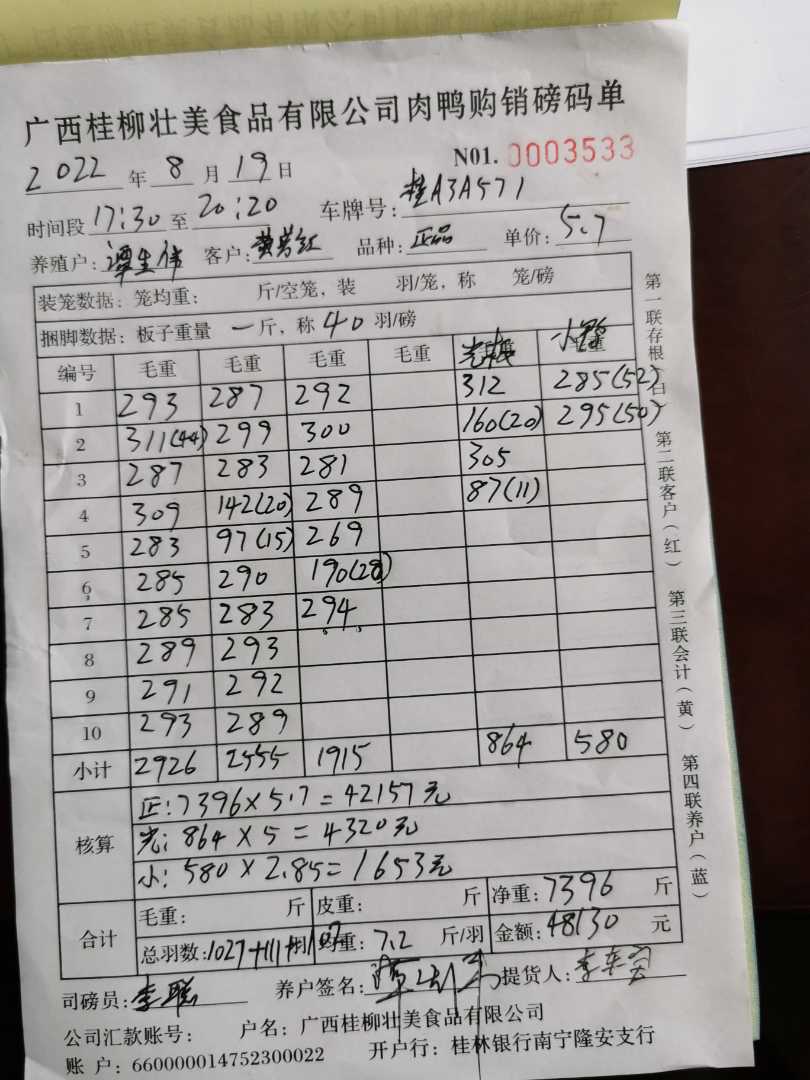 广西桂柳壮美食品有限公司肉鸭购销磅码单
2022 年 8 月 19 日 N01. 0003533
时间段 17:30 至 20:20 车牌号: 桂A3A571
养殖户: 谭生伟 客户: 黄芳红 品种: 正品 单价: 5.7
装笼数据: 笼均重: 斤/空笼, 装 羽/笼, 称 笼/磅
捆脚数据: 板子重量 一 斤, 称 40 羽/磅
编号 毛重 毛重 毛重 毛重 光 小
1 293 287 292 312 285(52)
2 311(44) 299 300 160(20) 295(50)
3 287 283 281 305
4 309 142(20) 289 87(11)
5 283 97(15) 269
6 285 290 190(28)
7 285 283 294
8 289 293
9 291 292
10 293 289
小计 2926 2555 1915 864 580
核算 正: 7396×5.7=42157元
光: 864×5=4320元
小: 580×2.85=1653元
合计 毛重: 斤 皮重: 斤 净重: 7396 斤
总羽数: 1027+111+ 均重: 7.2 斤/羽 金额: 48130 元
司磅员: 李聪 养户签名: 提货人: 李
公司汇款账号: 户名: 广西桂柳壮美食品有限公司
账 户: 660000014752300022 开户行: 桂林银行南宁隆安支行
第一联存根(白) 第二联客户(红) 第三联会计(黄) 第四联养户(蓝)